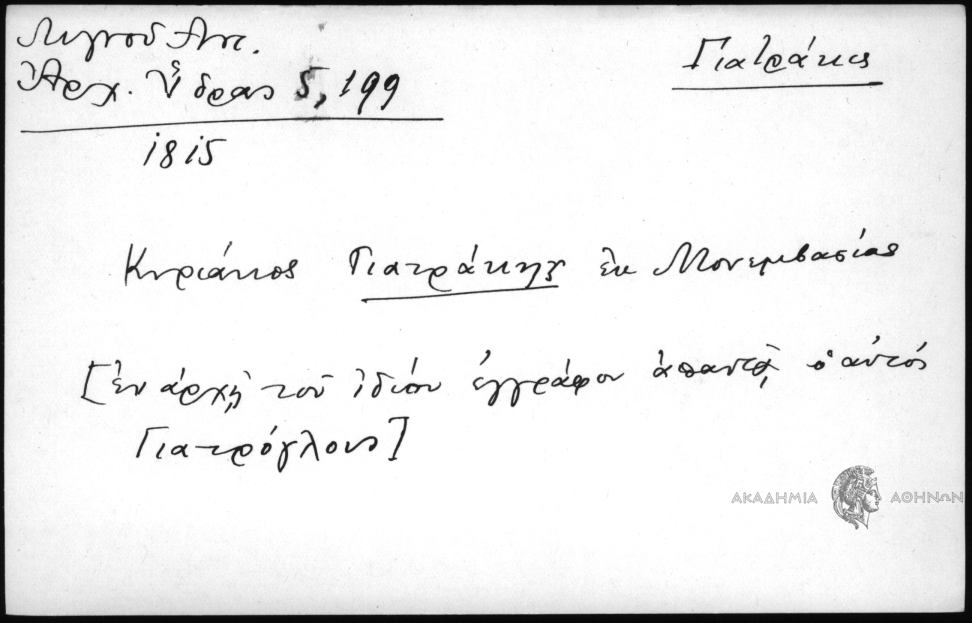 Λιγνοῦ Ἀντ.
Ἀρχ. Ὕδρας 5, 199
1815
Γιατράκης
Κυριάκος Γιατράκης ἐκ Μονεμβασίας
[ἐν ἀρχῇ τοῦ ἰδίου ἐγγράφου ἀπαντᾷ ὁ αὐτός
Γιατρόγλους]
ΑΚΑΔΗΜΙΑ ΑΘΗΝΩΝ